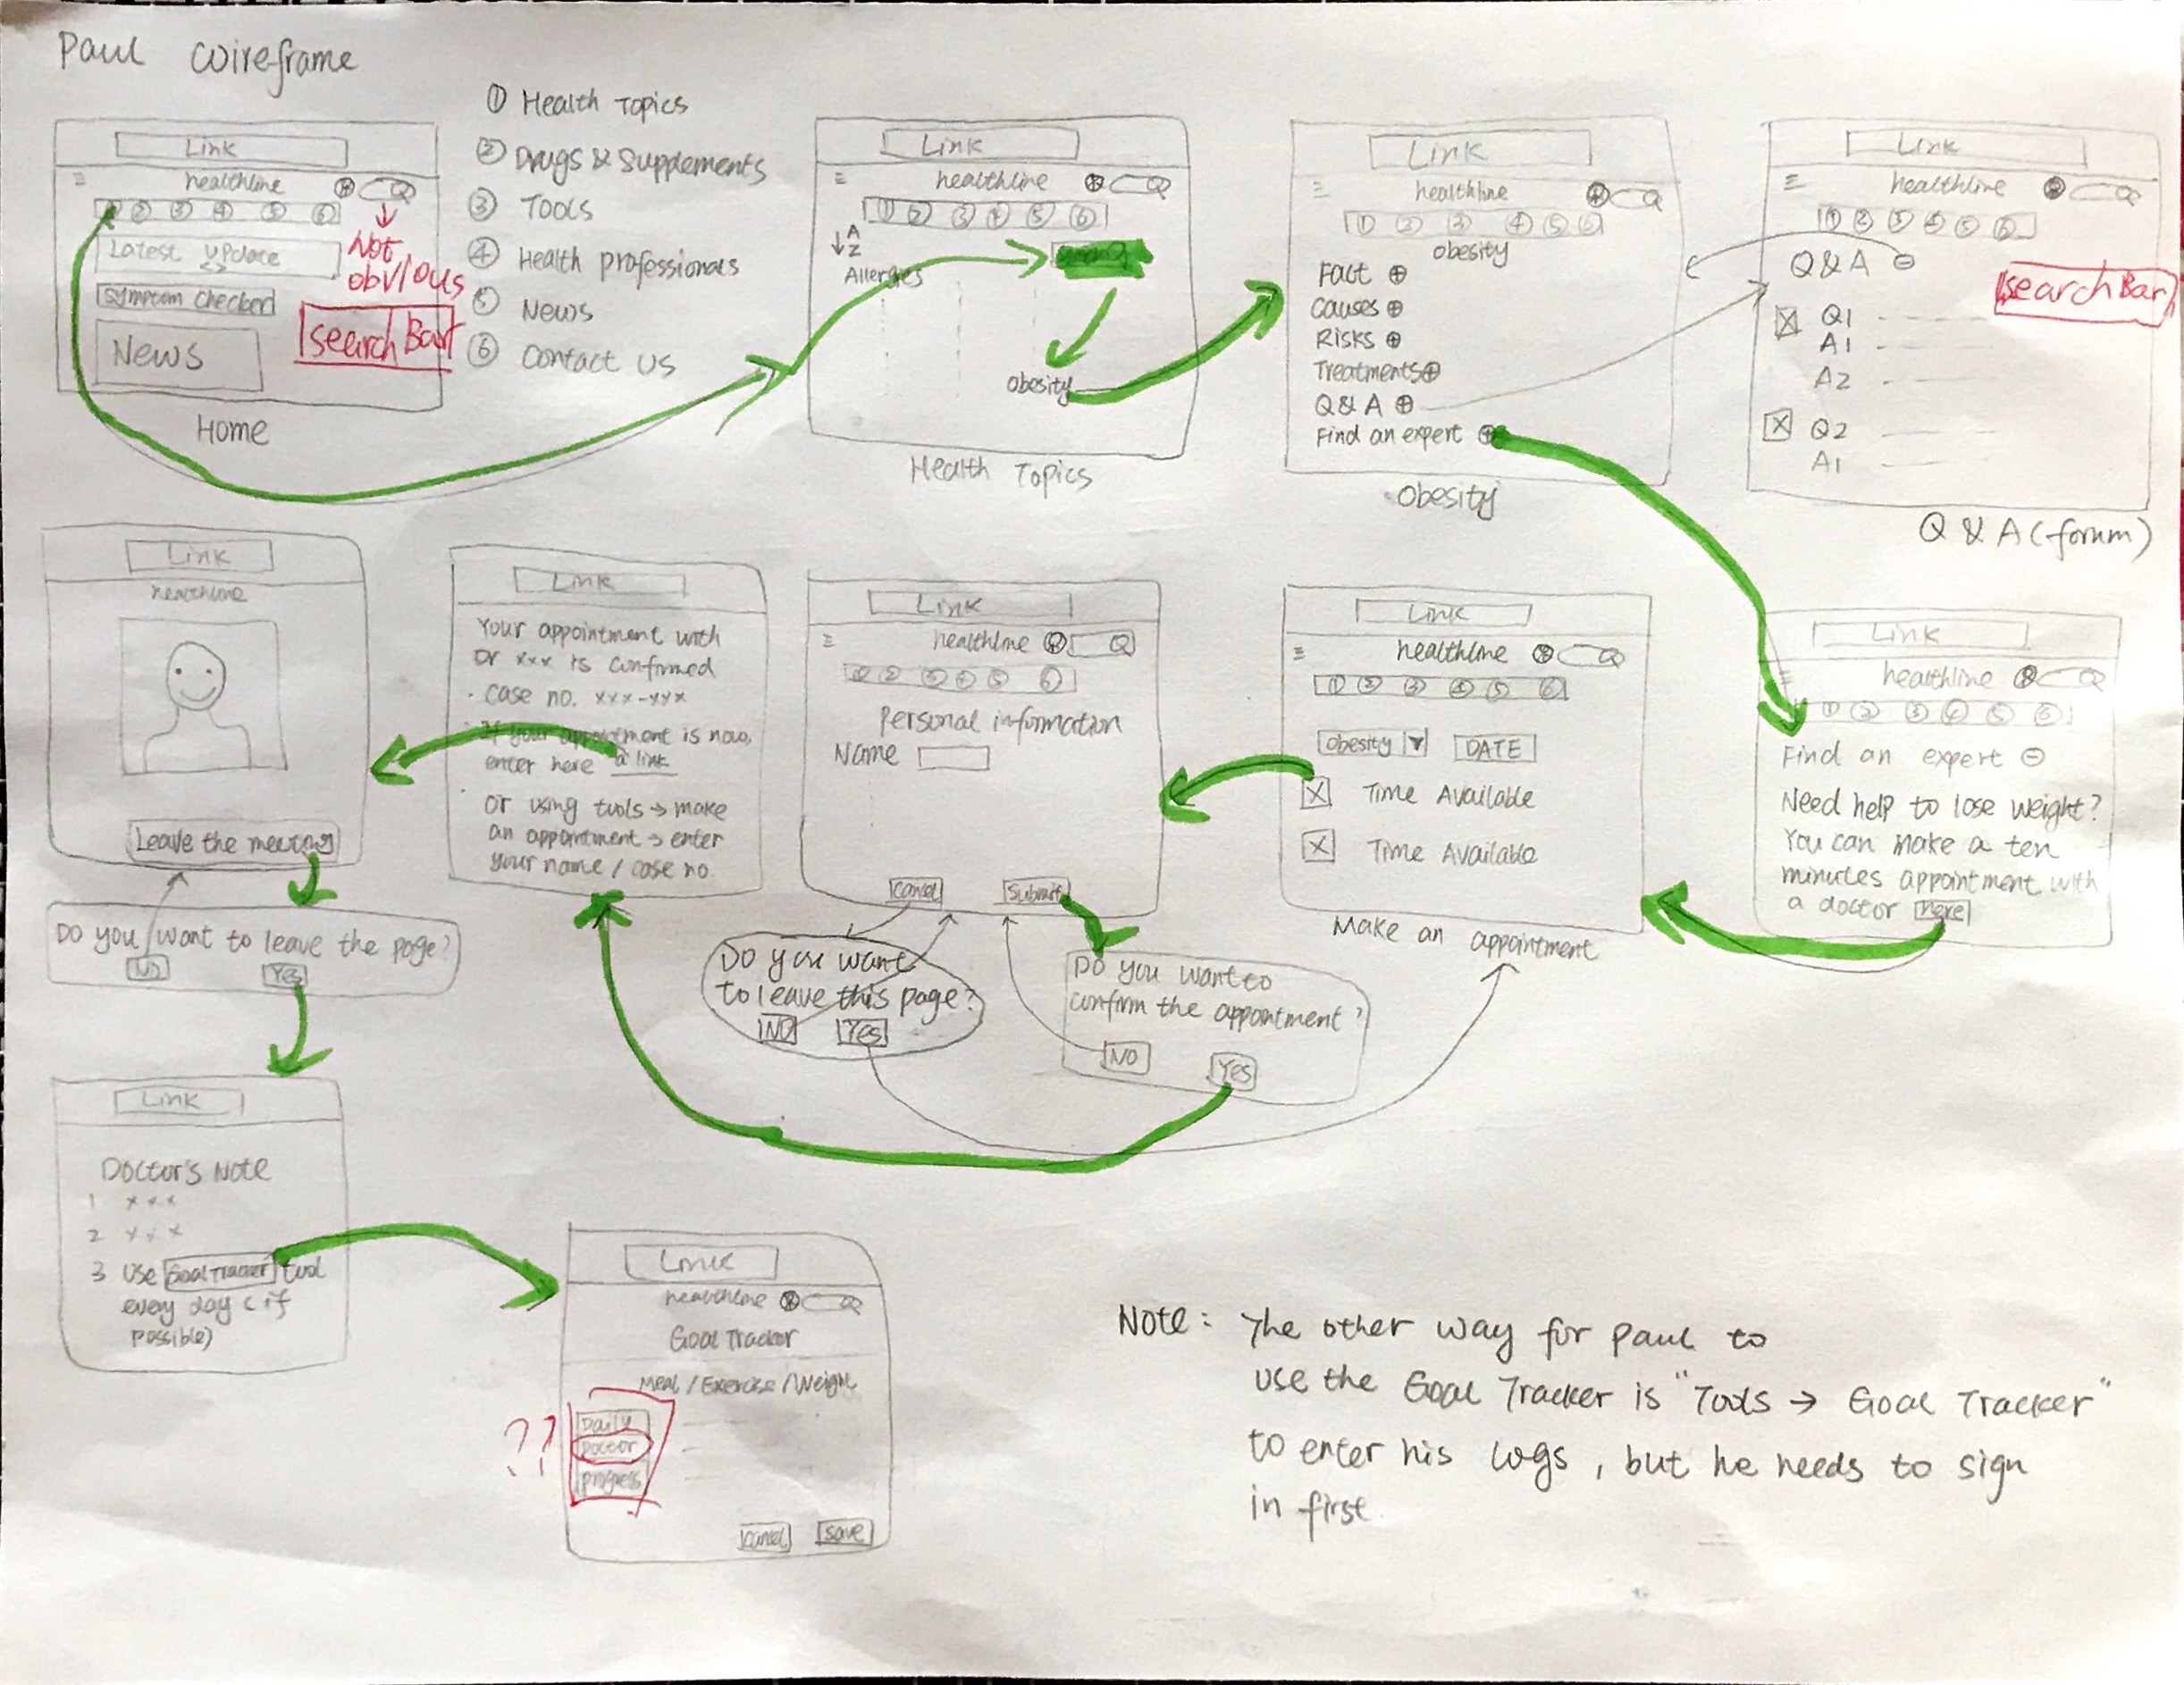 Paul Wireframe
Link
healthline
Q
① ② ③ ④ ⑤ ⑥
Latest Update
<>
Symptom Checker
News
Not
obvious
Search Bar
Home
① Health Topics
② Drugs & Supplements
③ Tools
④ Health professionals
⑤ News
⑥ Contact Us
Link
healthline
Q
① ② ③ ④ ⑤ ⑥
A
Z
Allergies
Obesity
Health Topics
Link
healthline
Q
① ② ③ ④ ⑤ ⑥
Obesity
Fact ⊕
Causes ⊕
Risks ⊕
Treatments ⊕
Q & A ⊕
Find an expert ⊕
Obesity
Link
healthline
Q
① ② ③ ④ ⑤ ⑥
Q & A ⊖
Search Bar
Q1
A1
A2
Q2
A1
Q & A (forum)
Link
healthline
Leave the meeting
Do you want to leave the page?
NO YES
Link
Your appointment with
Dr xxx is confirmed
· Case no. xxx-xxx
· If your appointment is now,
enter here a link
· Or using tools → make
an appointment → enter
your name / case no.
Link
healthline
Q
① ② ③ ④ ⑤ ⑥
Personal information
Name
Cancel Submit
Do you want
to leave this page?
NO YES
Do you want to
confirm the appointment?
NO YES
Link
healthline
Q
① ② ③ ④ ⑤ ⑥
Obesity ▼ DATE
X Time Available
X Time Available
Make an appointment
Link
healthline
Q
① ② ③ ④ ⑤ ⑥
Find an expert ⊖
Need help to lose weight?
You can make a ten
minutes appointment with
a doctor here
Link
Doctor's Note
1 xxx
2 xxx
3 Use Goal Tracker tool
every day (if
possible)
Link
healthline
Q
Goal Tracker
Meal / Exercise / Weight
??
Daily
Doctor
Progress
Cancel Save
Note: The other way for Paul to
use the Goal Tracker is "Tools → Goal Tracker"
to enter his logs, but he needs to sign
in first.